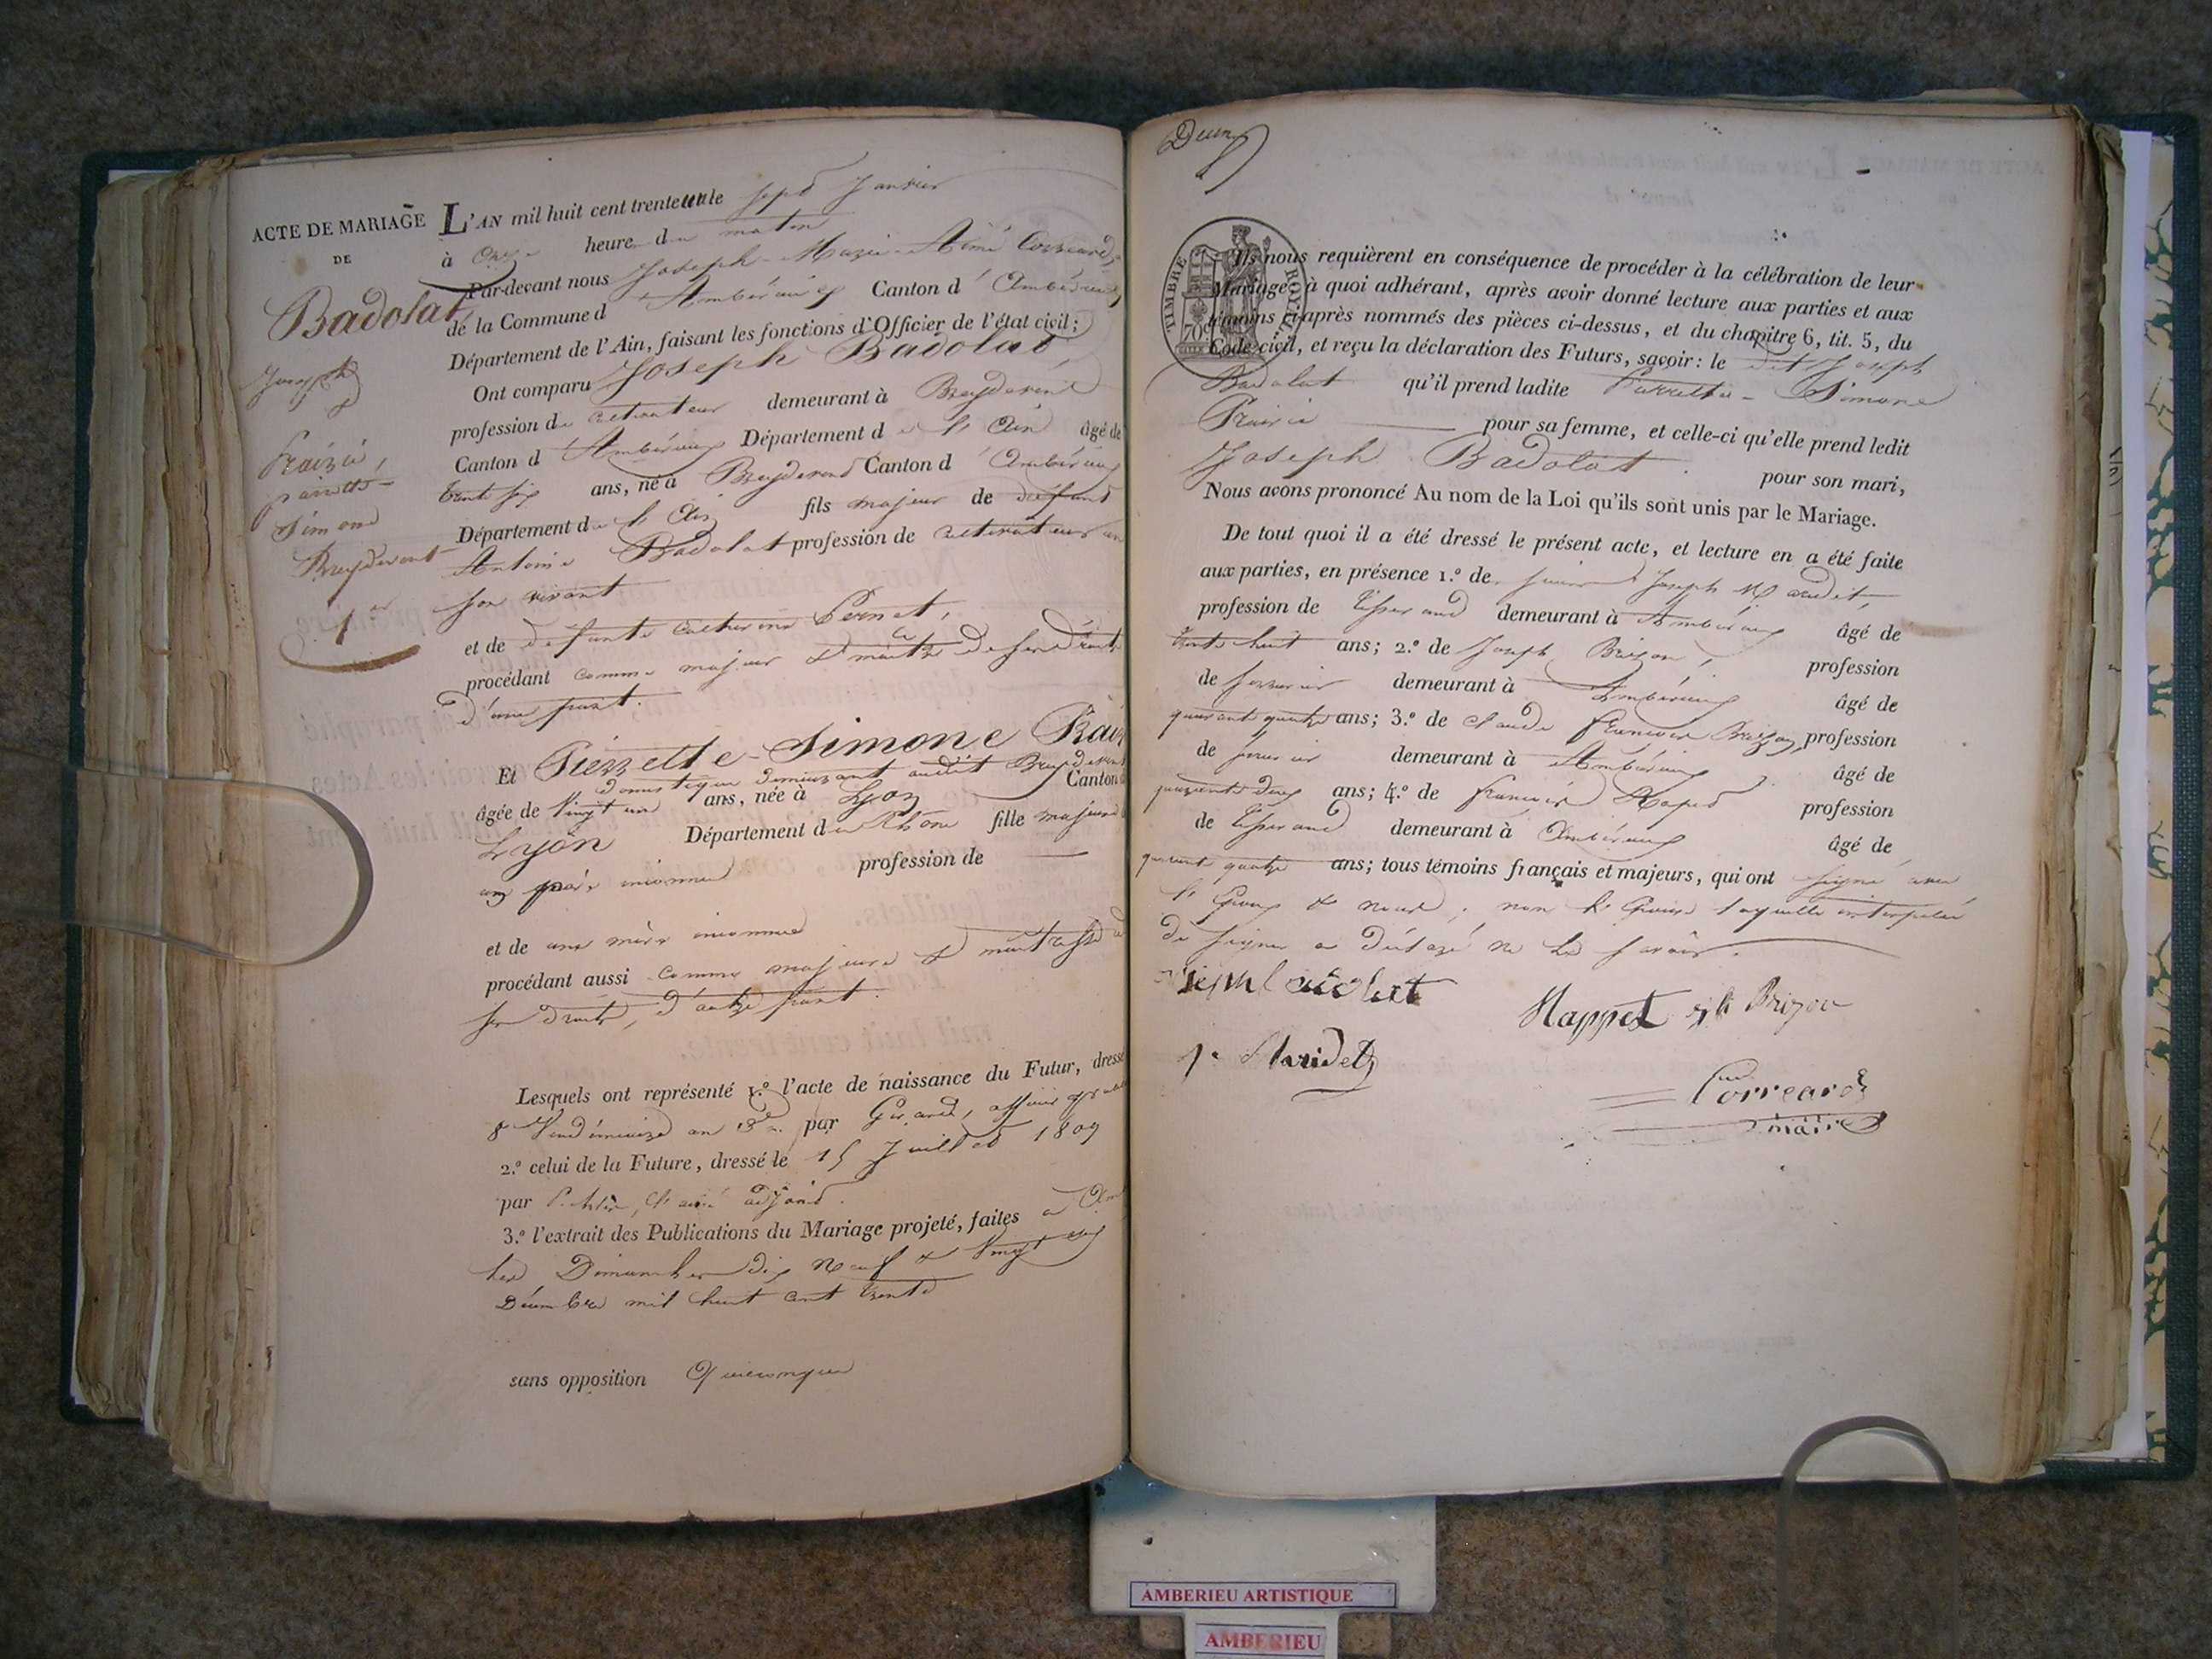 ACTE DE MARIAGE
DE
Badolat,
Joseph
Fraizié,
pierrette-
Simone
Breydevent
1er
L'AN mil huit cent trente un le sept Janvier
à onze heure du matin
Par-devant nous Joseph-Marie-Aimé Corréard,
de la Commune d'Ambérieux Canton d'Ambérieux
Département de l'Ain, faisant les fonctions d'Officier de l'état civil;
Ont comparu Joseph Badolat,
profession de cultivateur demeurant à Breydevent
Canton d'Ambérieux Département de l'Ain âgé de
trente six ans, né à Breydevent Canton d'Ambérieux
Département de l'Ain fils majeur de défunt
Antoine Badolat profession de cultivateur en
son vivant
et de défunte Catherine Pernet,
procédant comme majeur & maître de ses droits
d'une part.
Et Pierrette-Simone
domestique demeurant audit Breydevent
âgée de Vingt un ans, née à Lyon Canton
Lyon Département du Rhône fille majeure
un père inconnu profession de
et de une mère inconnue
procédant aussi comme majeure & maîtresse de
ses droits, d'autre part.
Lesquels ont représenté 1.º l'acte de naissance du Futur, dressé
8 Vendémiaire an 13 par Girard, officier
2.º celui de la Future, dressé le 15 Juillet 1809
par adjoint.
3.º l'extrait des Publications du Mariage projeté, faites à
les Dimanches dix neuf & Vingt six
Décembre mil huit cent trente
sans opposition Quelconque
Deux
TIMBRE ROYAL
70c
Ils nous requièrent en conséquence de procéder à la célébration de leur
Mariage, à quoi adhérant, après avoir donné lecture aux parties et aux
témoins ci-après nommés des pièces ci-dessus, et du chapitre 6, tit. 5, du
Code civil, et reçu la déclaration des Futurs, savoir: le dit Joseph
Badolat qu'il prend ladite Pierrette-Simone
Fraizié pour sa femme, et celle-ci qu'elle prend ledit
Joseph Badolat. pour son mari,
Nous avons prononcé Au nom de la Loi qu'ils sont unis par le Mariage.
De tout quoi il a été dressé le présent acte, et lecture en a été faite
aux parties, en présence 1.º de Joseph Maridet,
profession de tisserand demeurant à Ambérieux âgé de
trente huit ans; 2.º de Joseph Brizon, profession
de serrurier demeurant à Ambérieux âgé de
quarante quatre ans; 3.º de Claude François Brizon, profession
de serrurier demeurant à Ambérieux âgé de
quarante deux ans; 4.º de François profession
de tisserand demeurant à Ambérieux âgé de
quarante quatre ans; tous témoins français et majeurs, qui ont signé avec
l'époux & nous; non l'épouse laquelle interpelée
de signer a déclaré ne le savoir.
Mappet Brizon
Maridet
Corréard
maire
AMBERIEU ARTISTIQUE
AMBERIEU